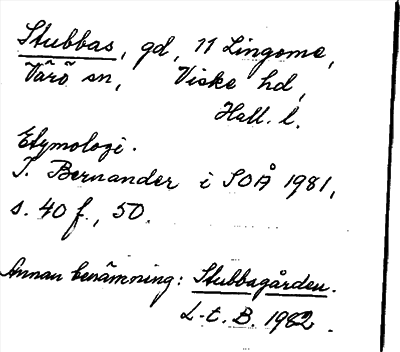 Stubbas, gd, 11 Lingome,
Värö sn, Viske hd,
Hall. l.
Etymologi.
I. Bernander i SOÅ 1981,
s. 40 f., 50.
Annan benämning: Stubbagården.
L-t. B. 1982.